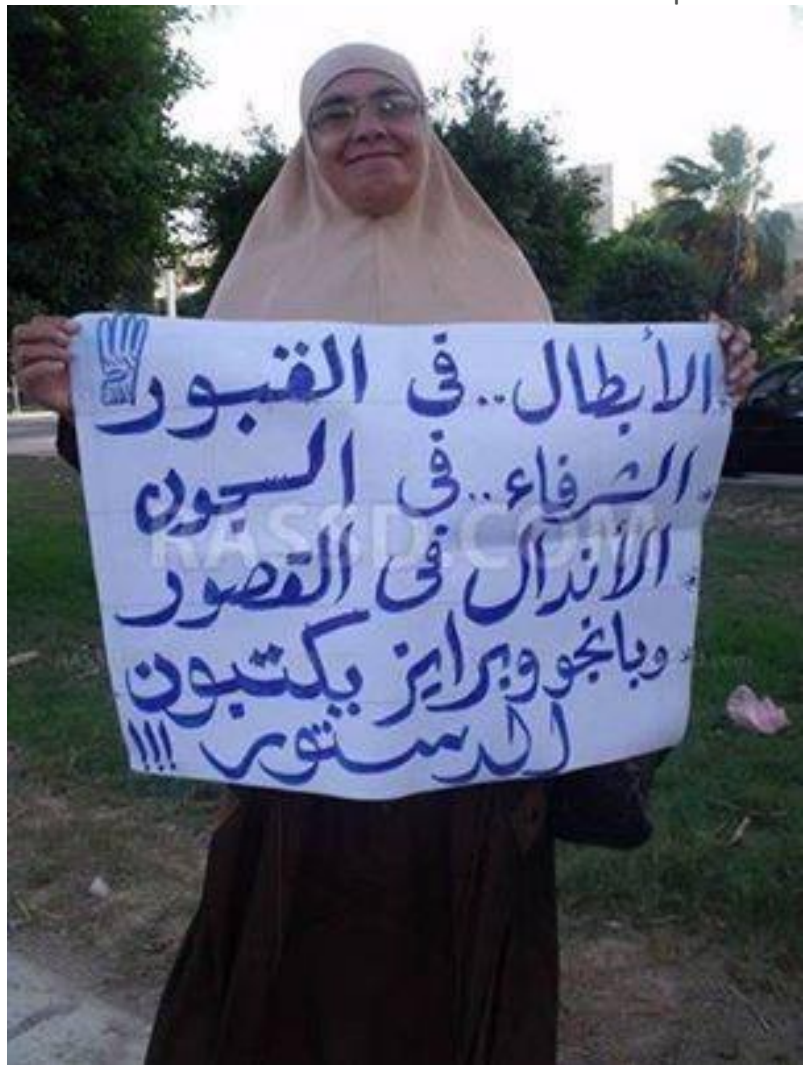 الأبطال.. في القبور
. الشرفاء.. في السجون
. الأندال في القصور
. وبانجو وبرايز يكتبون
الدستور !!!
RASSD.COM